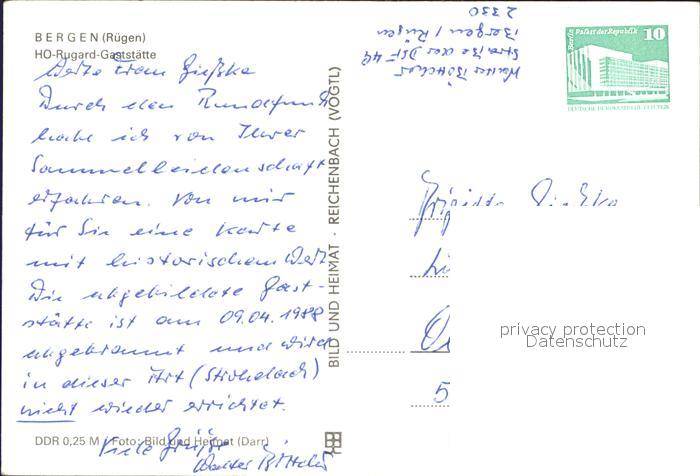 BERGEN (Rügen)
HO-Rugard-Gaststätte
Werte Frau Gießke
Durch den Rundfunk
habe ich von Ihrer
Sammelleidenschaft
erfahren. Von mir
für Sie eine Karte
mit historischem Wert.
Die abgebildete Gast-
stätte ist am 09.04.1988
abgebrannt und wird
in dieser Art (Strohdach)
nicht wieder errichtet.
Viele Grüße
Walter Böttcher
DDR 0,25 M / Foto: Bild und Heimat (Darr)
BILD UND HEIMAT · REICHENBACH (VOGTL)
Walter Böttcher
Straße der DSF 49
Bergen / Rügen
2330
Berlin Palast der Republik
10
DEUTSCHE DEMOKRATISCHE REPUBLIK
5
privacy protection
Datenschutz